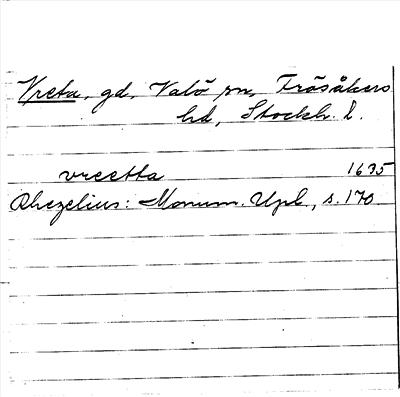 Vreta, gd, Valö sn, Frösåkers
hd, Stockh. l.
vreetta 1635
Rhezelius: Monum. Upl., s. 170